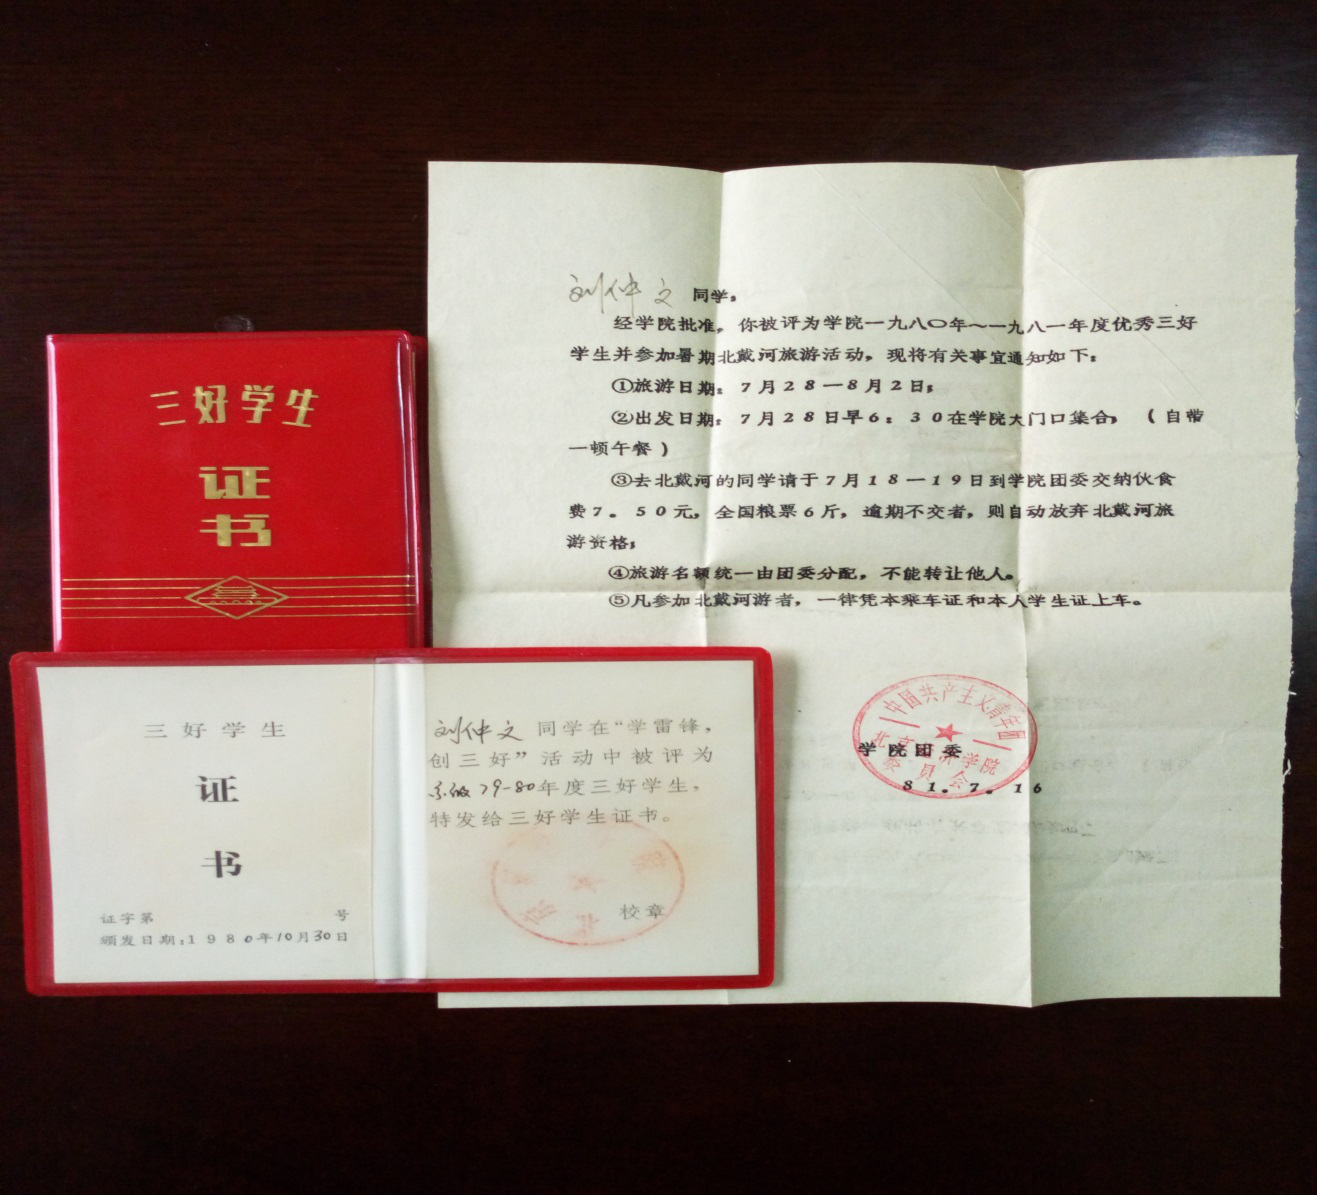 三好学生
证
书
刘仲文 同学:
经学院批准，你被评为学院一九八〇年～一九八一年度优秀三好
学生并参加暑期北戴河旅游活动，现将有关事宜通知如下：
①旅游日期：7月28—8月2日；
②出发日期：7月28日早6：30在学院大门口集合，（自带
一顿午餐）
③去北戴河的同学请于7月18—19日到学院团委交纳伙食
费7。50元，全国粮票6斤，逾期不交者，则自动放弃北戴河旅
游资格；
④旅游名额统一由团委分配，不能转让他人。
⑤凡参加北戴河游者，一律凭本乘车证和本人学生证上车。
中国共产主义青年团
北京经济学院
委员会
学院团委
81.7.16
三好学生
证
书
证字第 号
颁发日期：1980年10月30日
刘仲文 同学在“学雷锋，
创三好”活动中被评为
系级79-80年度三好学生，
特发给三好学生证书。
校章